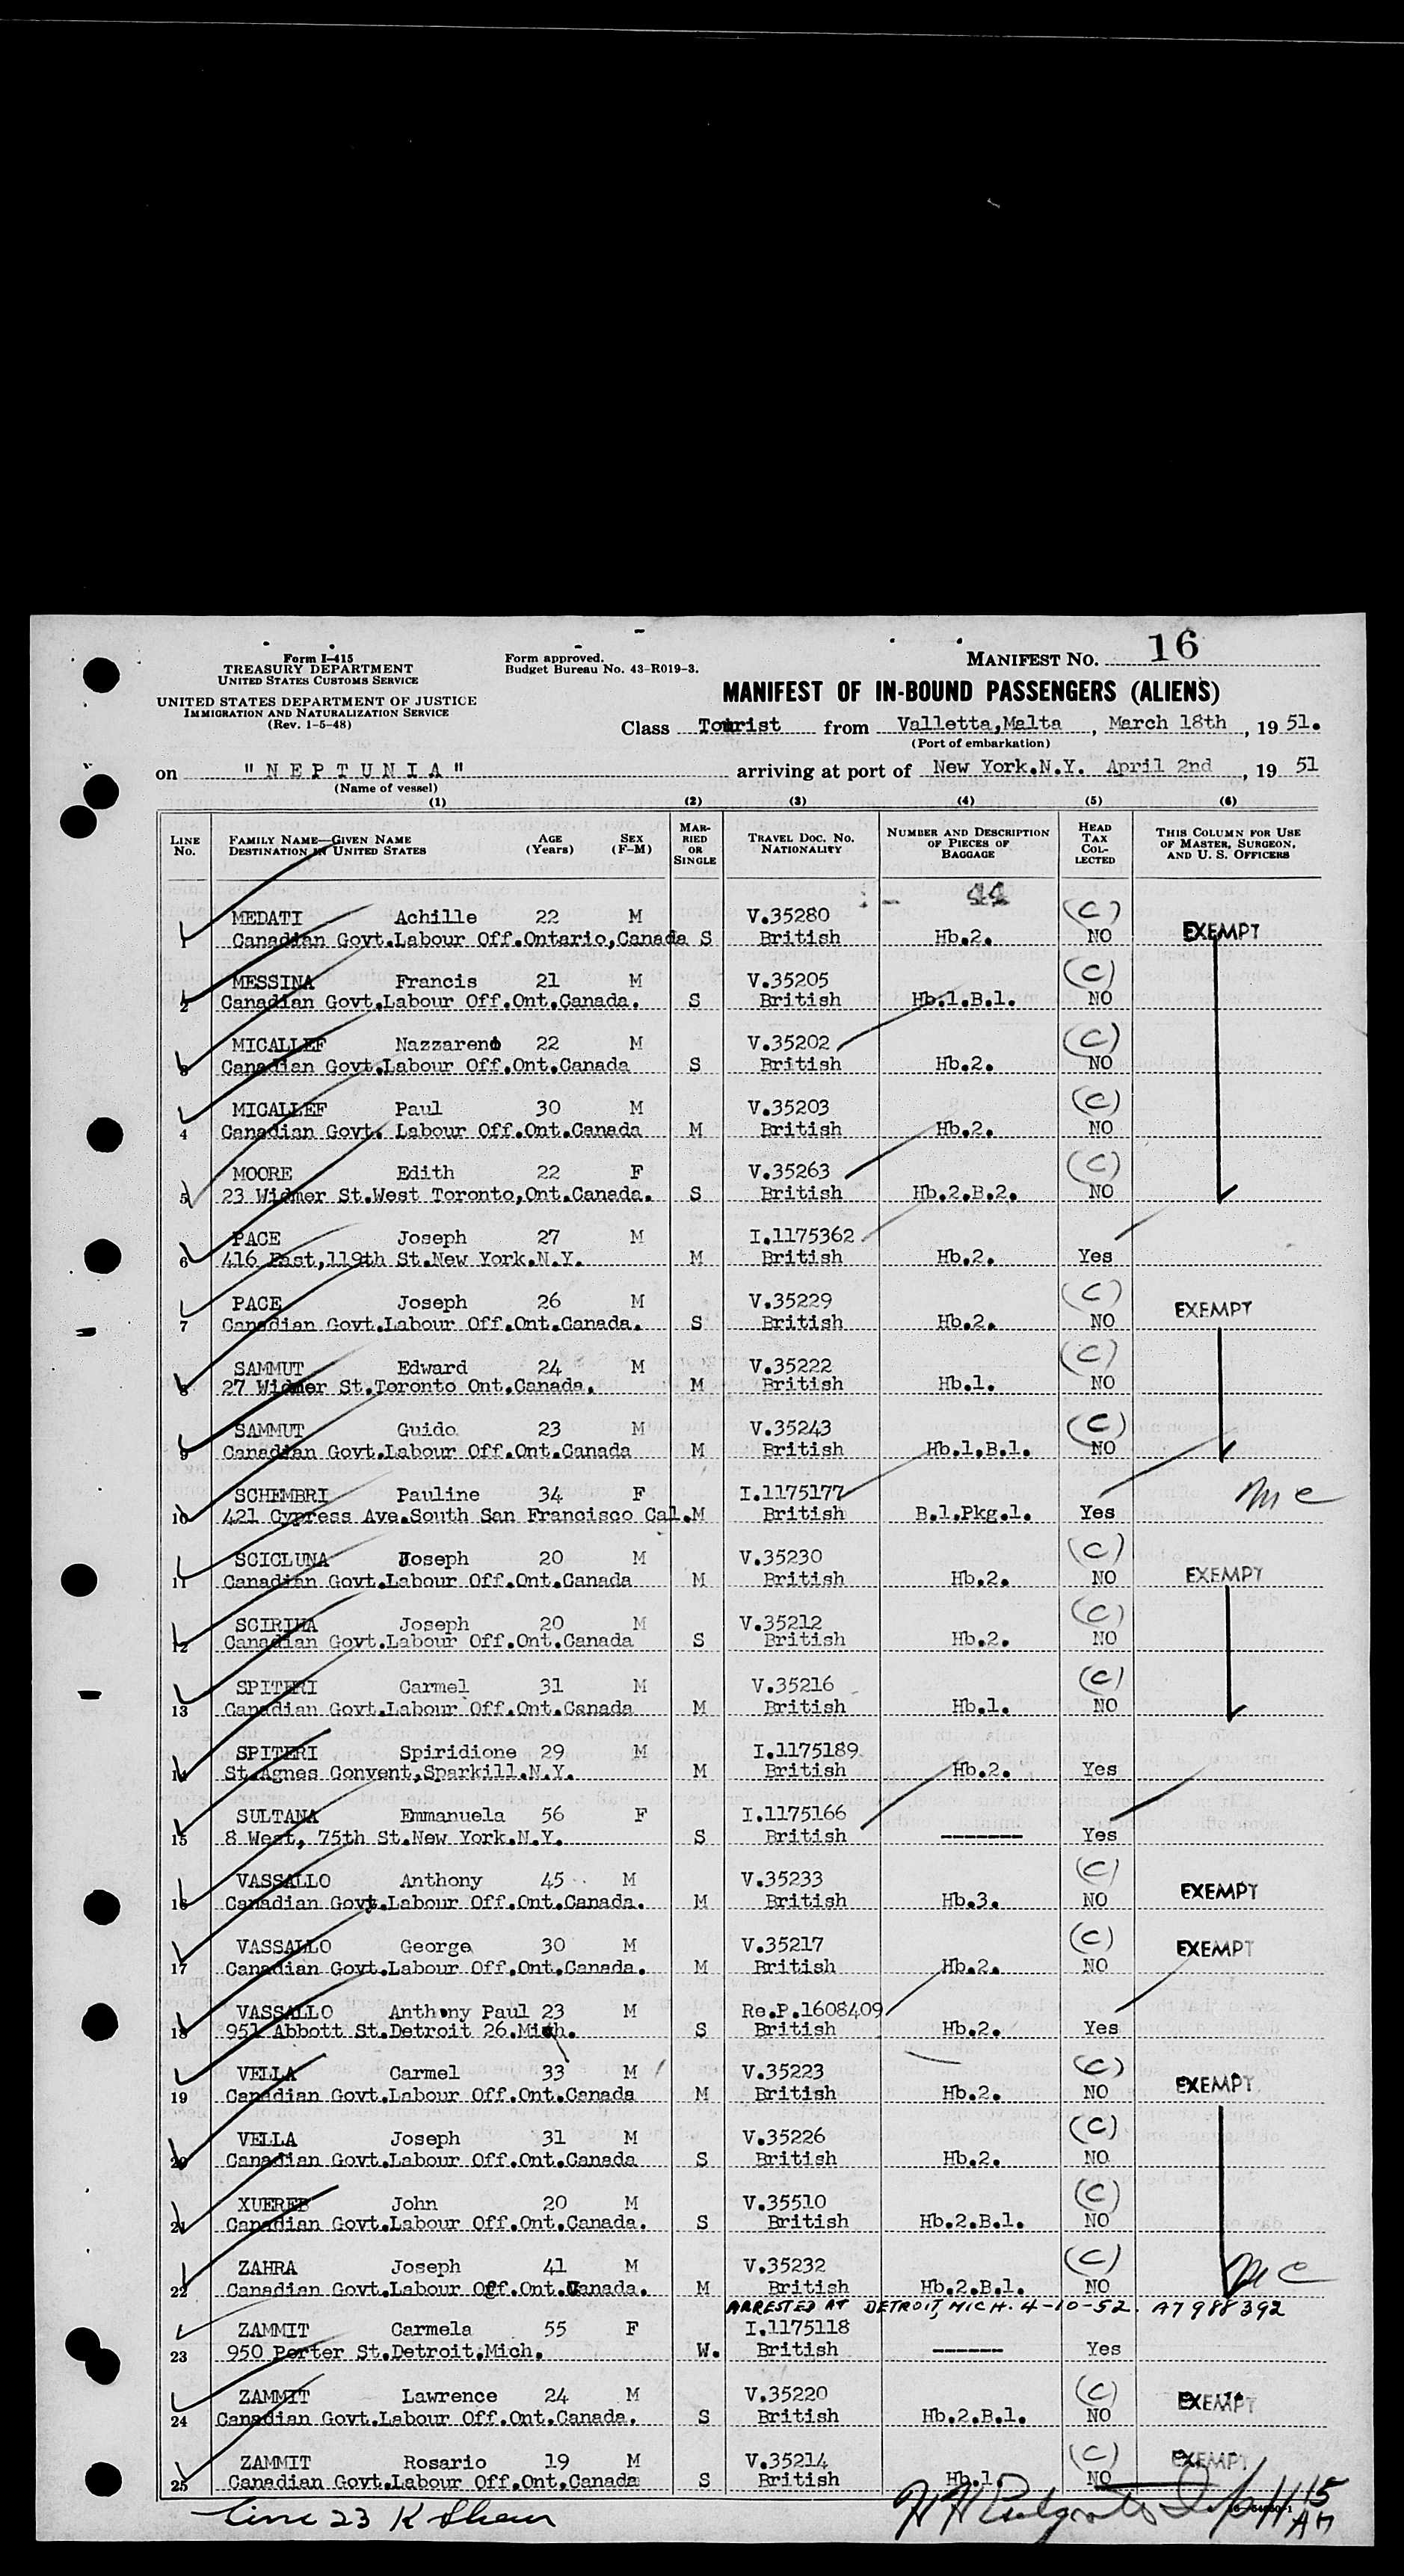 Form I-415
TREASURY DEPARTMENT
UNITED STATES CUSTOMS SERVICE
UNITED STATES DEPARTMENT OF JUSTICE
IMMIGRATION AND NATURALIZATION SERVICE
(Rev. 1-5-48)
Form approved.
Budget Bureau No. 43-R019-3.
MANIFEST NO. 16
MANIFEST OF IN-BOUND PASSENGERS (ALIENS)
Class Tourist from Valletta,Malta, March 18th, 19 51.
(Port of embarkation)
on "NEPTUNIA" arriving at port of New York.N.Y. April 2nd, 19 51
(Name of vessel)
(1) (2) (3) (4) (5) (6)
LINE NO. FAMILY NAME—GIVEN NAME DESTINATION IN UNITED STATES AGE (Years) SEX (F-M) MARRIED OR SINGLE TRAVEL DOC. NO. NATIONALITY NUMBER AND DESCRIPTION OF PIECES OF BAGGAGE HEAD TAX COLLECTED THIS COLUMN FOR USE OF MASTER, SURGEON, AND U. S. OFFICERS
44
MEDATI Achille 22 M V.35280 (C)
1 Canadian Govt.Labour Off.Ontario,Canada S British Hb.2. NO EXEMPT
MESSINA Francis 21 M V.35205 (C)
2 Canadian Govt.Labour Off.Ont.Canada. S British Hb.1.B.1. NO
MICALLEF Nazzareno 22 M V.35202 (C)
3 Canadian Govt.Labour Off.Ont.Canada S British Hb.2. NO
MICALLEF Paul 30 M V.35203 (C)
4 Canadian Govt. Labour Off.Ont.Canada M British Hb.2. NO
MOORE Edith 22 F V.35263 (C)
5 23 Widmer St.West Toronto,Ont.Canada. S British Hb.2.B.2. NO
PACE Joseph 27 M I.1175362
6 416 East,119th St.New York.N.Y. M British Hb.2. Yes
PACE Joseph 26 M V.35229 (C) EXEMPT
7 Canadian Govt.Labour Off.Ont.Canada. S British Hb.2. NO
SAMMUT Edward 24 M V.35222 (C)
8 27 Widmer St.Toronto Ont.Canada. M British Hb.1. NO
SAMMUT Guido 23 M V.35243 (C)
9 Canadian Govt.Labour Off.Ont.Canada M British Hb.1.B.1. NO
SCHEMBRI Pauline 34 F I.1175177 mc
10 421 Cypress Ave.South San Francisco Cal. M British B.1.Pkg.1. Yes
SCICLUNA Joseph 20 M V.35230 (C)
11 Canadian Govt.Labour Off.Ont.Canada M British Hb.2. NO EXEMPT
SCIRIHA Joseph 20 M V.35212 (C)
12 Canadian Govt.Labour Off.Ont.Canada S British Hb.2. NO
SPITERI Carmel 31 M V.35216 (C)
13 Canadian Govt.Labour Off.Ont.Canada M British Hb.1. NO
SPITERI Spiridione 29 M I.1175189
14 St.Agnes Convent,Sparkill.N.Y. M British Hb.2. Yes
SULTANA Emmanuela 56 F I.1175166
15 8 West, 75th St.New York.N.Y. S British ------- Yes
VASSALLO Anthony 45 M V.35233 (C)
16 Canadian Govt.Labour Off.Ont.Canada. M British Hb.3. NO EXEMPT
VASSALLO George 30 M V.35217 (C) EXEMPT
17 Canadian Govt.Labour Off.Ont.Canada. M British Hb.2. NO
VASSALLO Anthony Paul 23 M Re.P.1608409
18 951 Abbott St.Detroit 26.Mich. S British Hb.2. Yes
VELLA Carmel 33 M V.35223 (C)
19 Canadian Govt.Labour Off.Ont.Canada M British Hb.2. NO EXEMPT
VELLA Joseph 31 M V.35226 (C)
20 Canadian Govt.Labour Off.Ont.Canada S British Hb.2. NO
XUEREB John 20 M V.35510 (C)
21 Canadian Govt.Labour Off.Ont.Canada. S British Hb.2.B.1. NO
ZAHRA Joseph 41 M V.35232 (C) mc
22 Canadian Govt.Labour Off.Ont.Canada. M British Hb.2.B.1. NO
ARRESTED AT DETROIT, MICH. 4-10-52. A7988392
ZAMMIT Carmela 55 F I.1175118
23 950 Porter St.Detroit.Mich. W. British ------ Yes
ZAMMIT Lawrence 24 M V.35220 (C) EXEMPT
24 Canadian Govt.Labour Off.Ont.Canada. S British Hb.2.B.1. NO
ZAMMIT Rosario 19 M V.35214 (C) EXEMPT
25 Canadian Govt.Labour Off.Ont.Canada S British Hb.1. NO
Line 23 K Shea